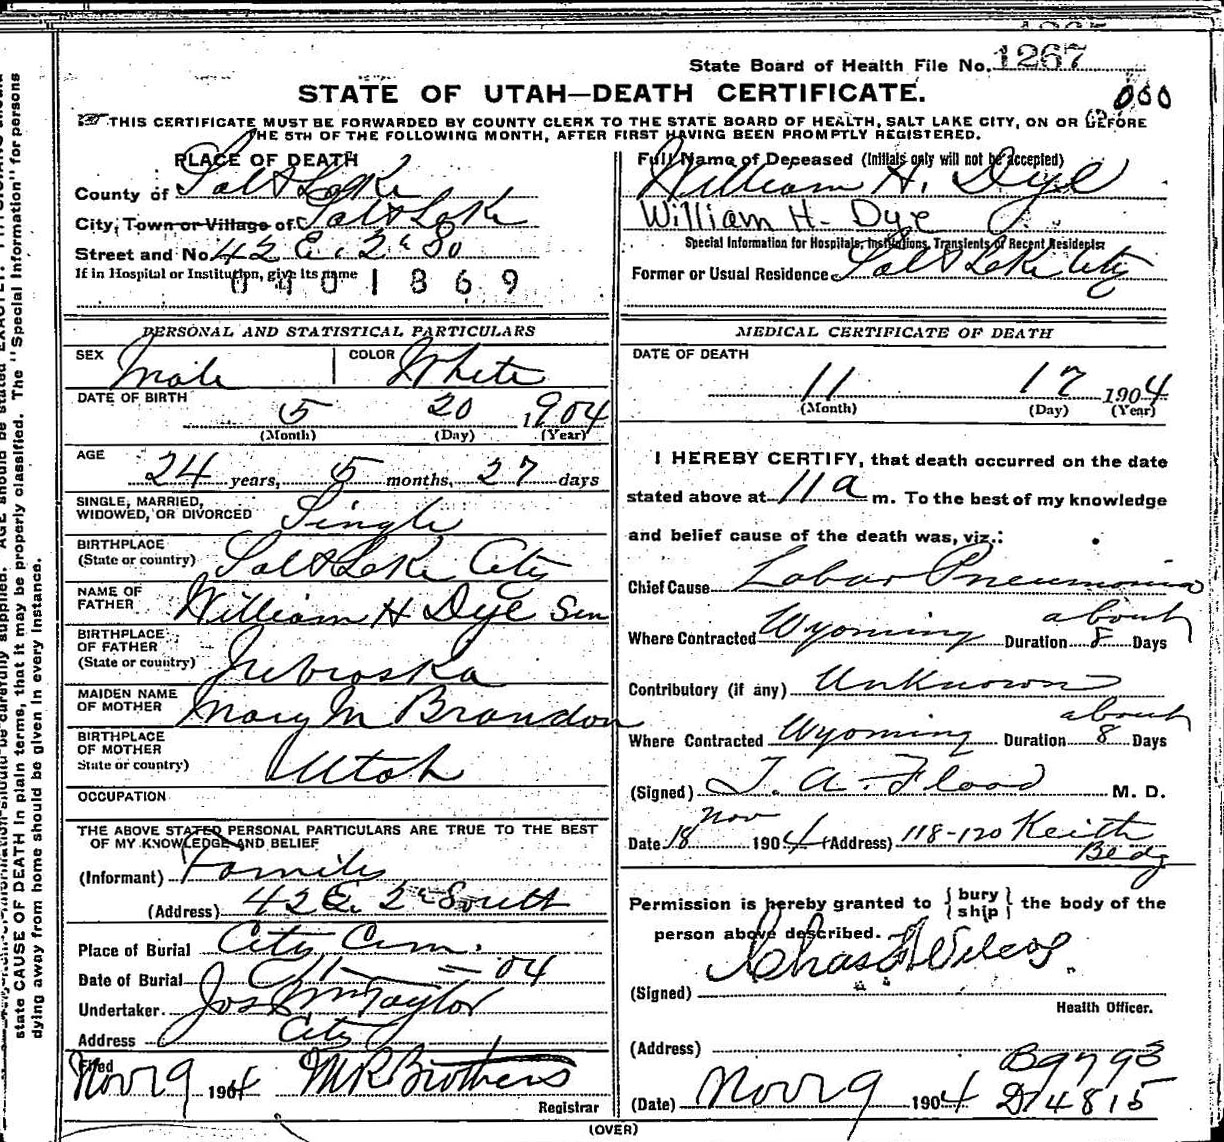 State Board of Health File No. 1267
STATE OF UTAH—DEATH CERTIFICATE.
000
THIS CERTIFICATE MUST BE FORWARDED BY COUNTY CLERK TO THE STATE BOARD OF HEALTH, SALT LAKE CITY, ON OR BEFORE
THE 5TH OF THE FOLLOWING MONTH, AFTER FIRST HAVING BEEN PROMPTLY REGISTERED.
PLACE OF DEATH
County of Salt Lake
City, Town or Village of Salt Lake
Street and No. 42 E. 2d So
If in Hospital or Institution, give its name
0401869
Full Name of Deceased (Initials only will not be accepted)
William H. Dye
William H. Dye
Special Information for Hospitals, Institutions, Transients or Recent Residents:
Former or Usual Residence Salt Lake City
PERSONAL AND STATISTICAL PARTICULARS
SEX Male COLOR White
DATE OF BIRTH
5 20 1904
(Month) (Day) (Year)
AGE
24 years, 5 months, 27 days
SINGLE, MARRIED,
WIDOWED, OR DIVORCED Single
BIRTHPLACE
(State or country) Salt Lake City
NAME OF
FATHER William H Dye Sen
BIRTHPLACE
OF FATHER
(State or country) Nebraska
MAIDEN NAME
OF MOTHER Mary M Brandon
BIRTHPLACE
OF MOTHER
State or country) Utah
OCCUPATION
THE ABOVE STATED PERSONAL PARTICULARS ARE TRUE TO THE BEST
OF MY KNOWLEDGE AND BELIEF
(Informant) Family
(Address) 42 E. 2d South
Place of Burial City Cem.
Date of Burial 04
Undertaker Jos Wm Taylor
Address City
Filed Nov 19 1904 M R Brothers
Registrar
MEDICAL CERTIFICATE OF DEATH
DATE OF DEATH
11 17 1904
(Month) (Day) (Year)
I HEREBY CERTIFY, that death occurred on the date
stated above at 11 a m. To the best of my knowledge
and belief cause of the death was, viz.:
Chief Cause Lobar Pneumonia
Where Contracted Wyoming Duration about 8 Days
Contributory (if any) Unknown
Where Contracted Wyoming Duration about 8 Days
(Signed) T. A. Flood M. D.
Date 18 Nov 1904 (Address) 118-120 Keith
Bldg
Permission is hereby granted to { bury ship } the body of the
person above described.
(Signed) Chas Wilcox
Health Officer.
(Address)
B9793
(Date) Nov 19 1904 D4815
(OVER)
state CAUSE OF DEATH in plain terms, that it may be properly classified. The "Special Information" for persons
dying away from home should be given in every instance.